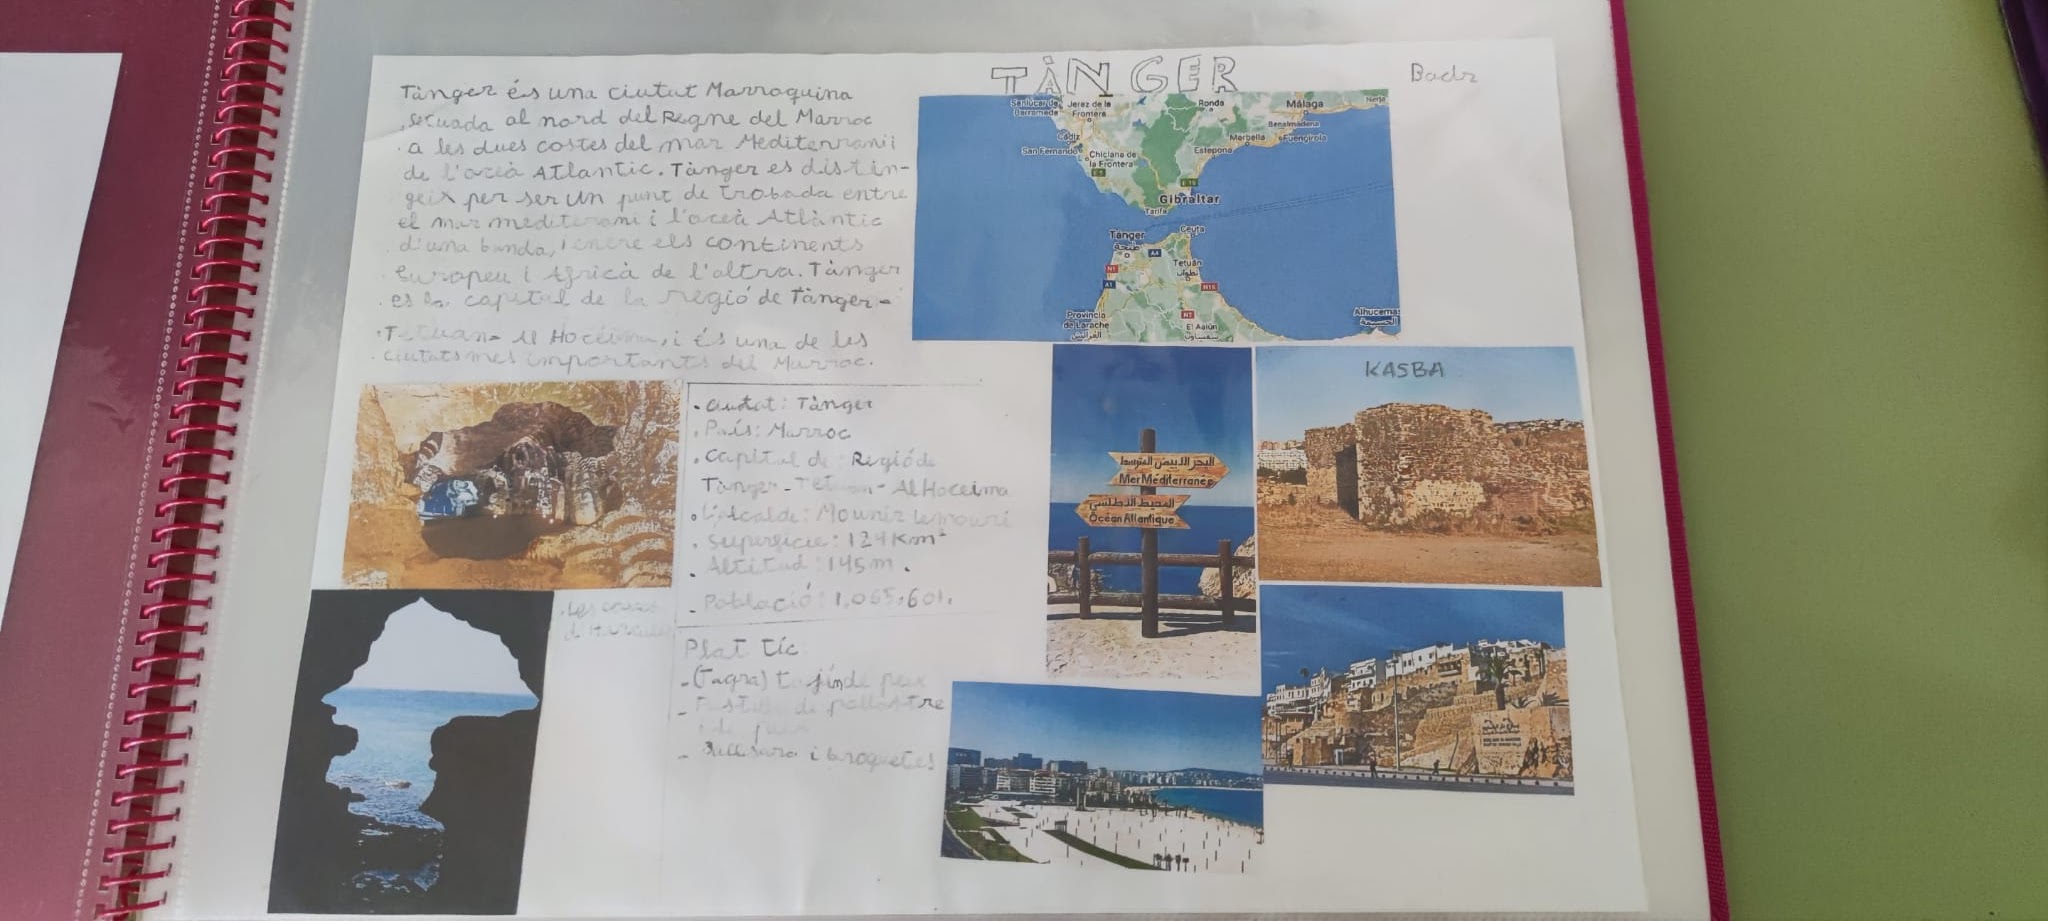 TÀNGER
Badr
Tànger és una ciutat Marroquina
situada al nord del Regne del Marroc
a les dues costes del mar Mediterrani i
de l'oceà Atlantic. Tànger es distin-
geix per ser un punt de trobada entre
el mar mediterani i l'oceà Atlàntic
d'una banda, i entre els continents
Europeu i Africà de l'altra. Tànger
es la capital de la regió de Tànger-
Tetuan- Al Hoceima, i és una de les
ciutats mes importants del Marroc.
Sanlúcar de Barrameda
Jerez de la Frontera
Ronda
Málaga
Nerja
Benalmádena
Cádiz
Marbella
Fuengirola
San Fernando
Chiclana de la Frontera
Estepona
Gibraltar
Tarifa
Ceuta
Tánger
طنجة
A4
Tetuán
تطوان
N1
A1
N16
Provincia de Larache
العرائش
El Aaiún
Alhucemas
الحسيمة
. ciutat: Tànger
. País: Marroc
. Capital de: Regió de
Tànger-Tetuan-Al Hoceima
. L'alcalde: Mounir Lemouri
. Superfície: 124 Km²
. Altitud: 145 m.
- Població: 1.065.601.
. Les coves
d'Hercules
Plat tíc
- (Tagra) tajín de peix
- Pastilla de pollastre
i de peix
- Baissara i broquetes
البحر الأبيض المتوسط
Mer Méditerranée
المحيط الأطلسي
Océan Atlantique
KASBA